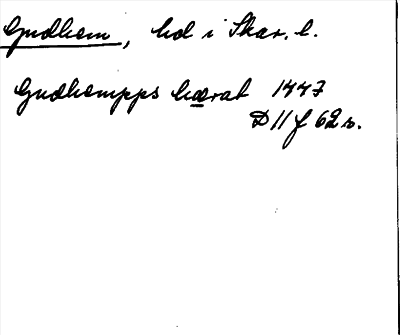 Gudhem, hd i Skar. l.
Gudhempps hærat 1447
D 11 f 62 v.